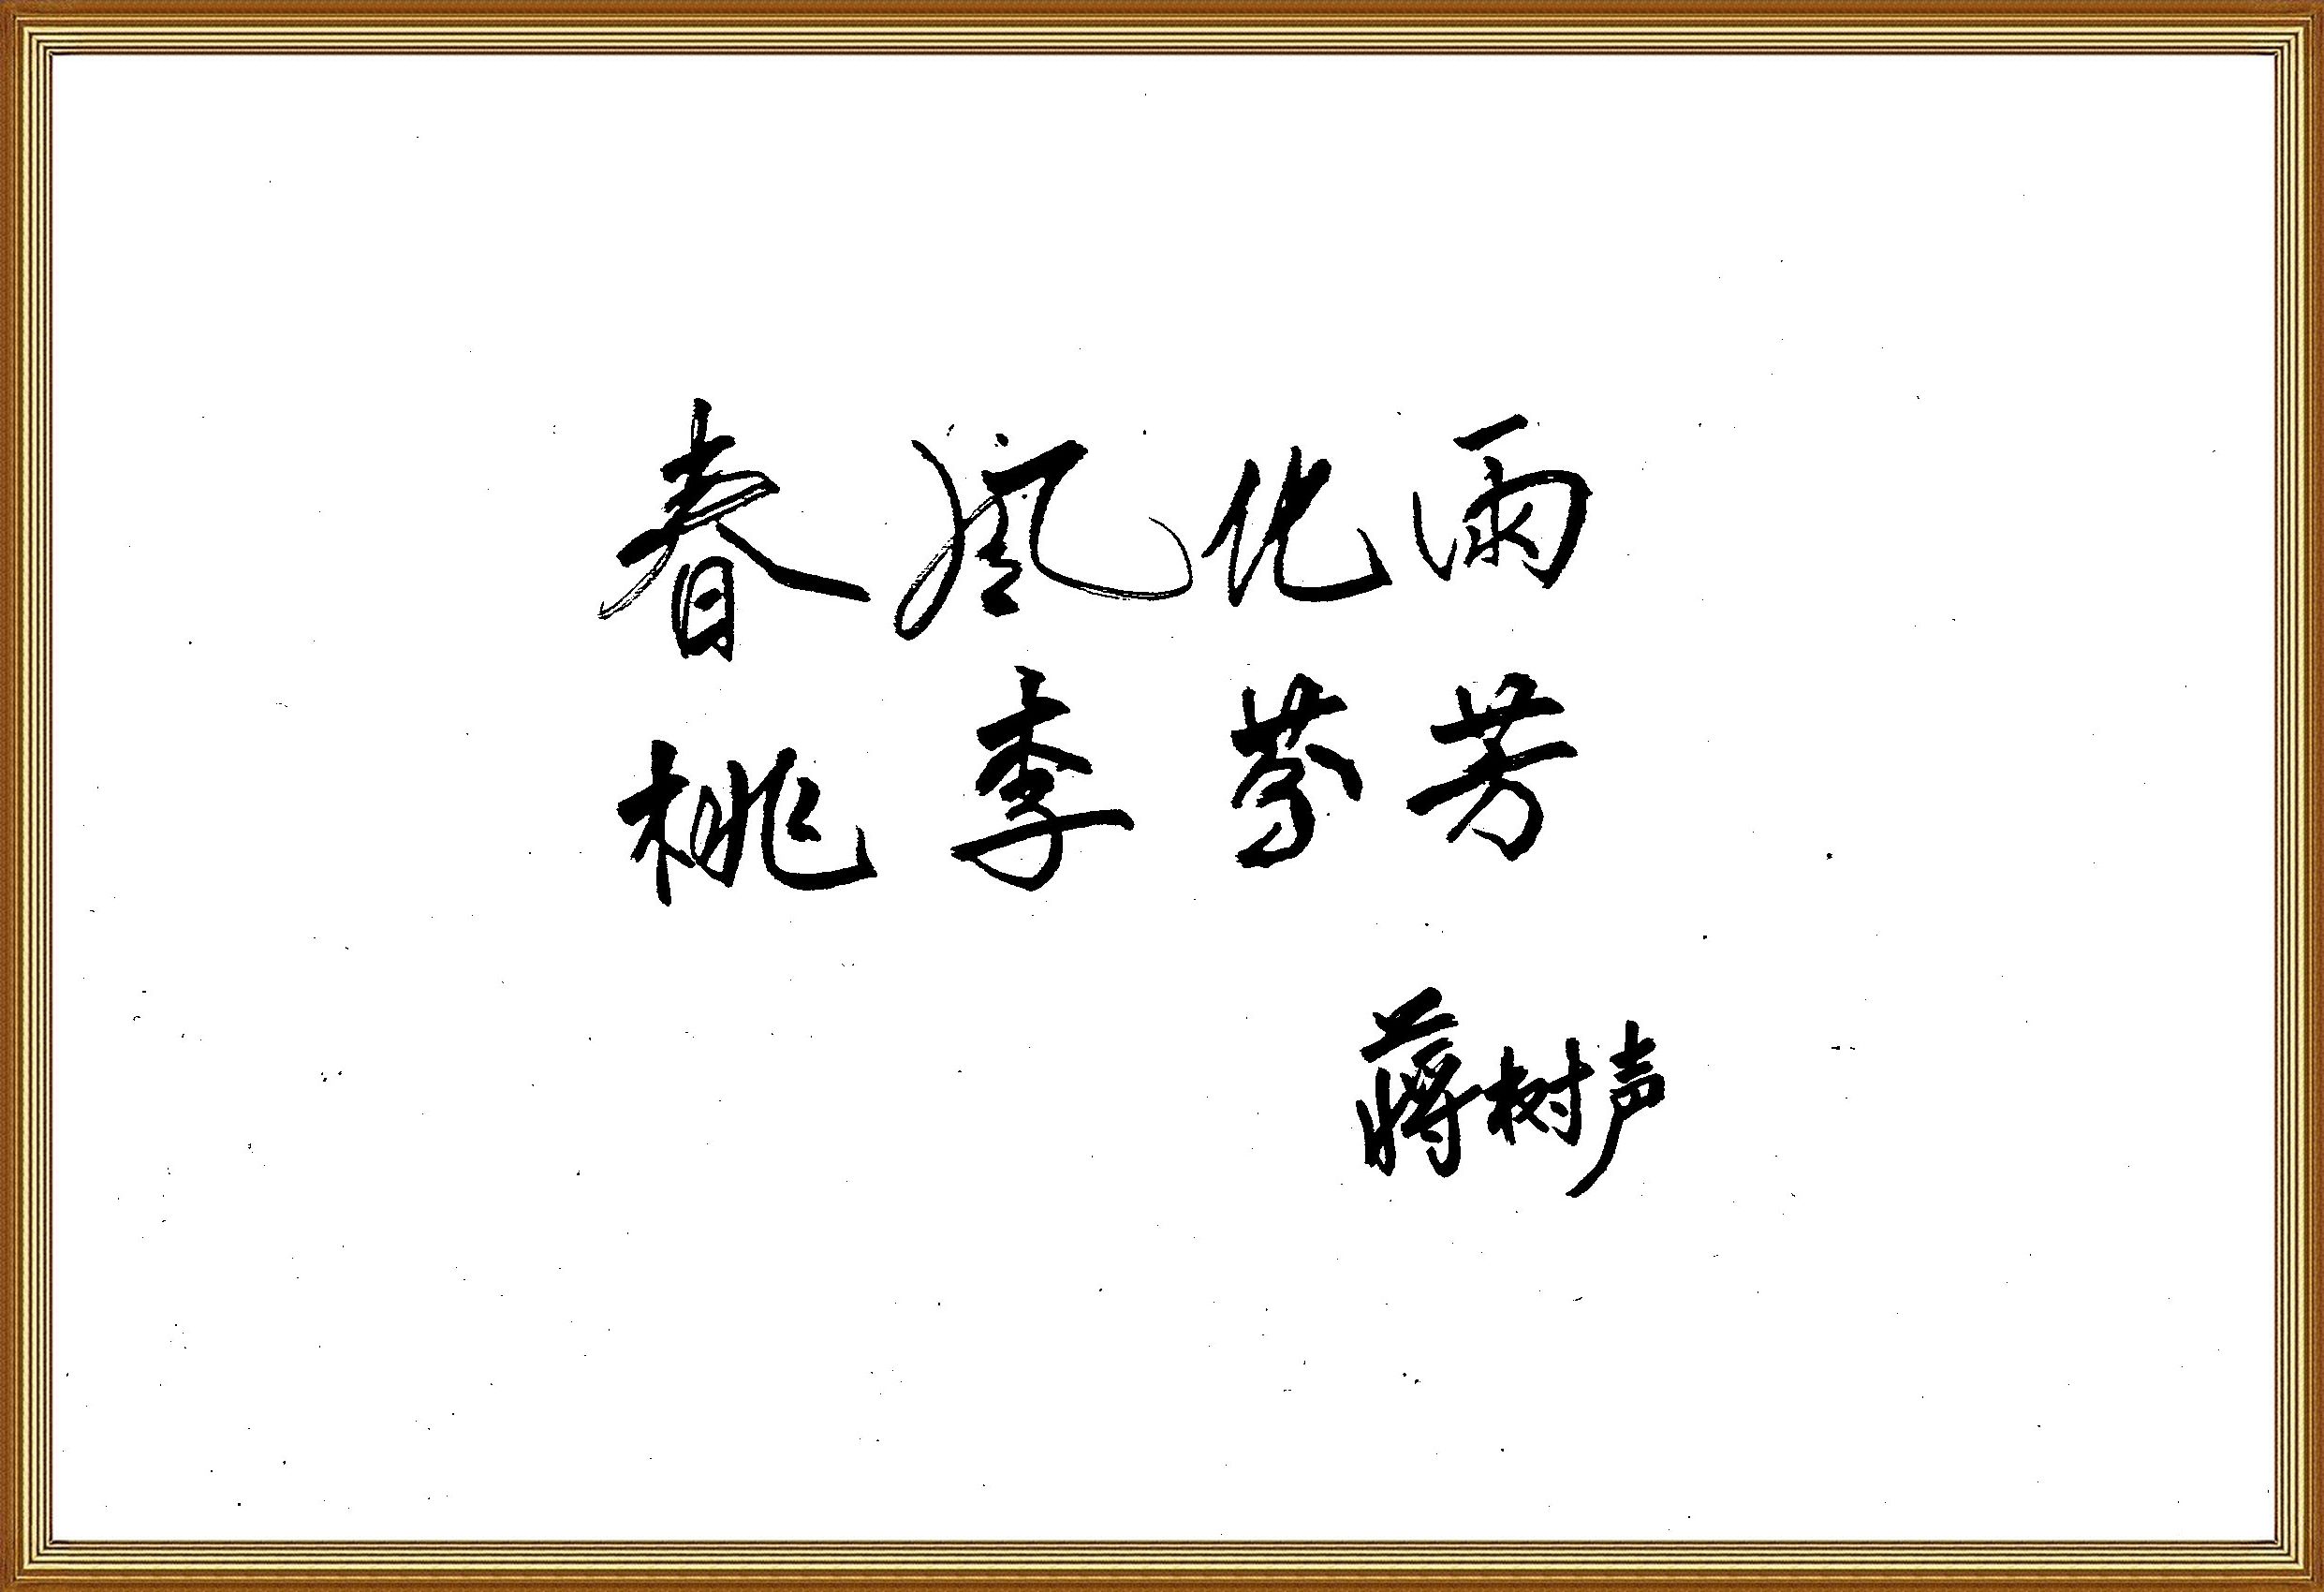 春风化雨
桃李芬芳
蒋树声